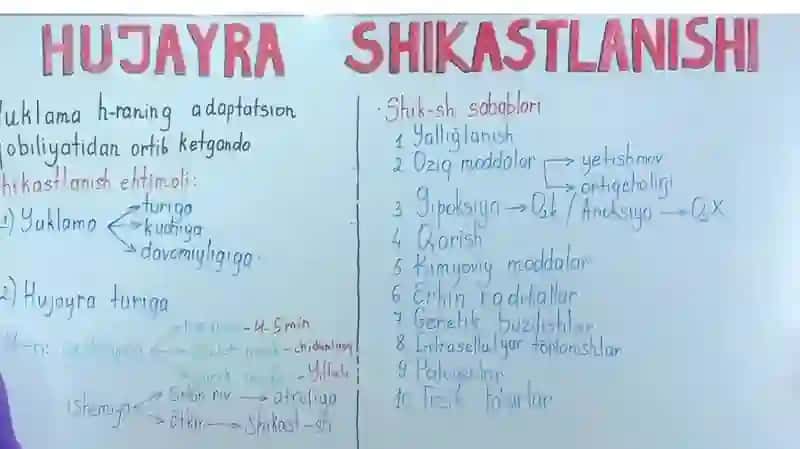 HUJAYRA SHIKASTLANISHI
uklama h-raning adaptatsion
obiliyatidan ortib ketganda
hikastlanish ehtimoli:
1) Yuklama → turiga
→ kuchiga
→ davomiyligiga.
2) Hujayra turiga
- 4-5 min
- chidamliroq
Ishemiya → → atrofiya
→ o'tkir → Shikast-sh
· Shik-sh sabablari
1 Yallig'lanish
2 Oziq moddalar → yetishmov
→ ortiqchaligi
3 Gipoksiya → O₂↓ / Anoksiya → O₂X
4 Qarish
5 Kimyoviy moddalar
6 Erkin radikallar
7 Genetik buzilishlar
8 toplanishlar
9 Patogenlar
10 Fizik ta'sirlar